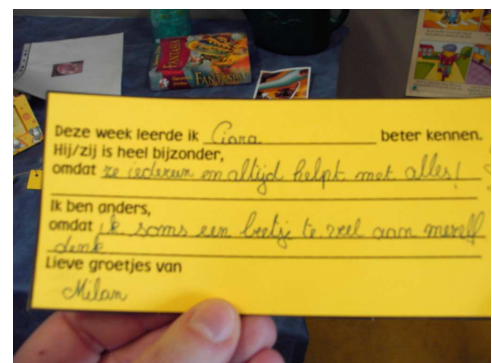 FANTASIA
FANTASIA
Deze week leerde ik Ciara beter kennen.
Hij/zij is heel bijzonder,
omdat ze iedereen en altijd helpt met alles!
Ik ben anders,
omdat ik soms een beetje te veel aan mezelf
denk
Lieve groetjes van
Milan